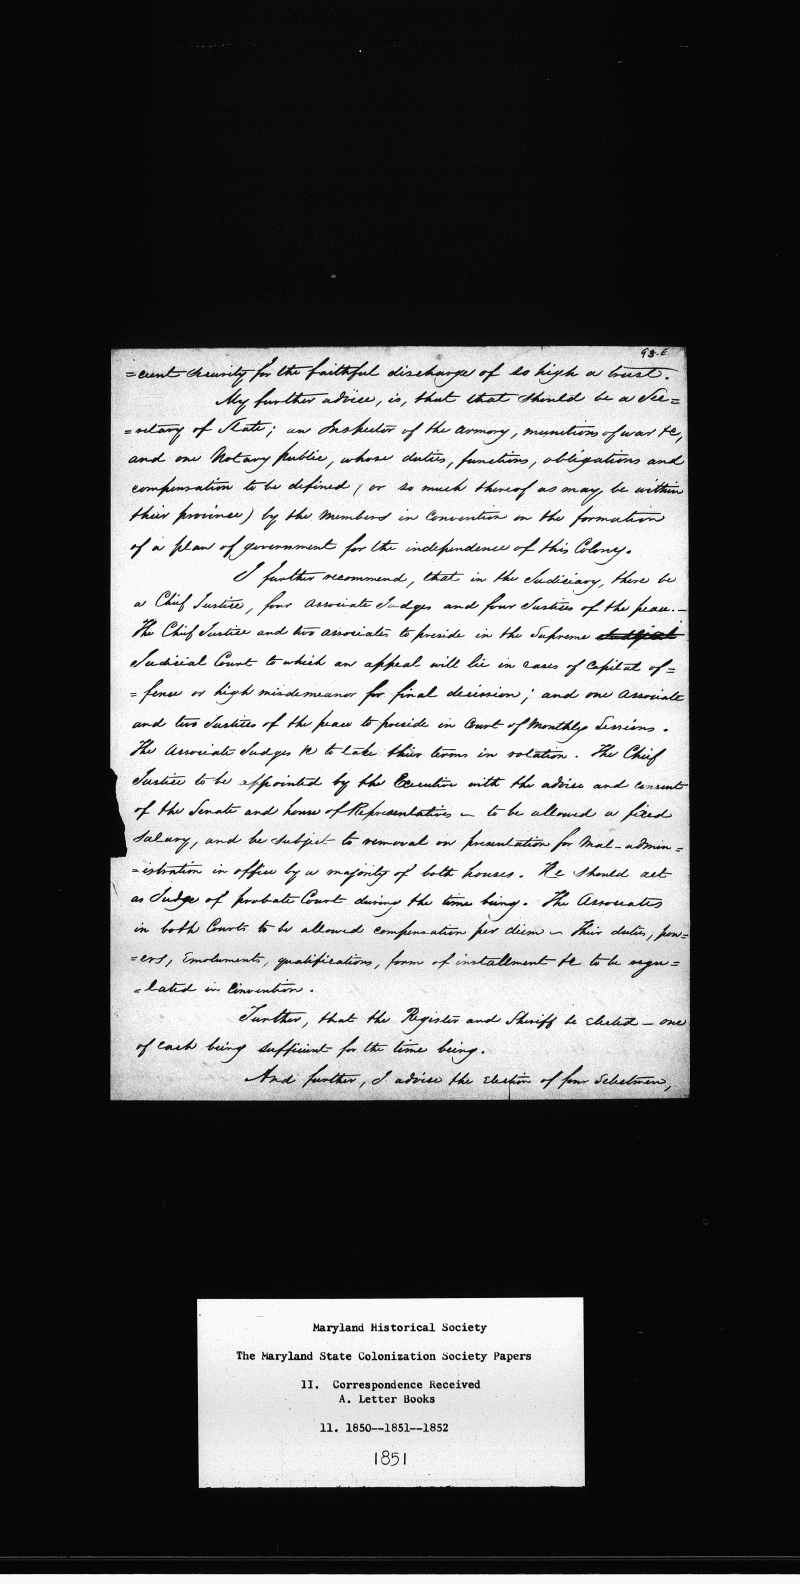 93.E
=cient security for the faithful discharge of so high a trust.
My further advice, is, that that should be a Sec=
=retary of State; an Inspector of the armory, munitions of war &c,
and one Notary public, whose duties, functions, obligations and
compensation to be defined (or so much thereof as may be within
their province) by the members in Convention on the formation
of a plan of government for the independence of this Colony.
I further recommend, that in the Judiciary, there be
a Chief Justice, four Associate Judges and four Justices of the peace. —
The Chief Justice and two associates to preside in the Supreme
Judicial Court to which an appeal will lie in cases of Capital of=
=fence or high misdemeanor for final decission; and one associate
and two Justices of the peace to preside in Court of Monthly Sessions.
The Associate Judges &c to take their terms in rotation. The Chief
Justice to be appointed by the Executive with the advice and consent
of the Senate and house of Representatives — to be allowed a fixed
salary, and be subject to removal on presentation for Mal-admin=
=istration in office by a majority of both houses. He should act
as Judge of probate Court during the time being. The Associates
in both Courts to be allowed compensation per diem — Their duties, pow=
=ers, Emoluments, qualifications, form of installment &c to be regu=
=lated in Convention.
Further, that the Register and Sheriff be elected — one
of each being sufficient for the time being.
And further, I advise the election of four Selectmen,
Maryland Historical Society
The Maryland State Colonization Society Papers
II. Correspondence Received
A. Letter Books
11. 1850--1851--1852
1851